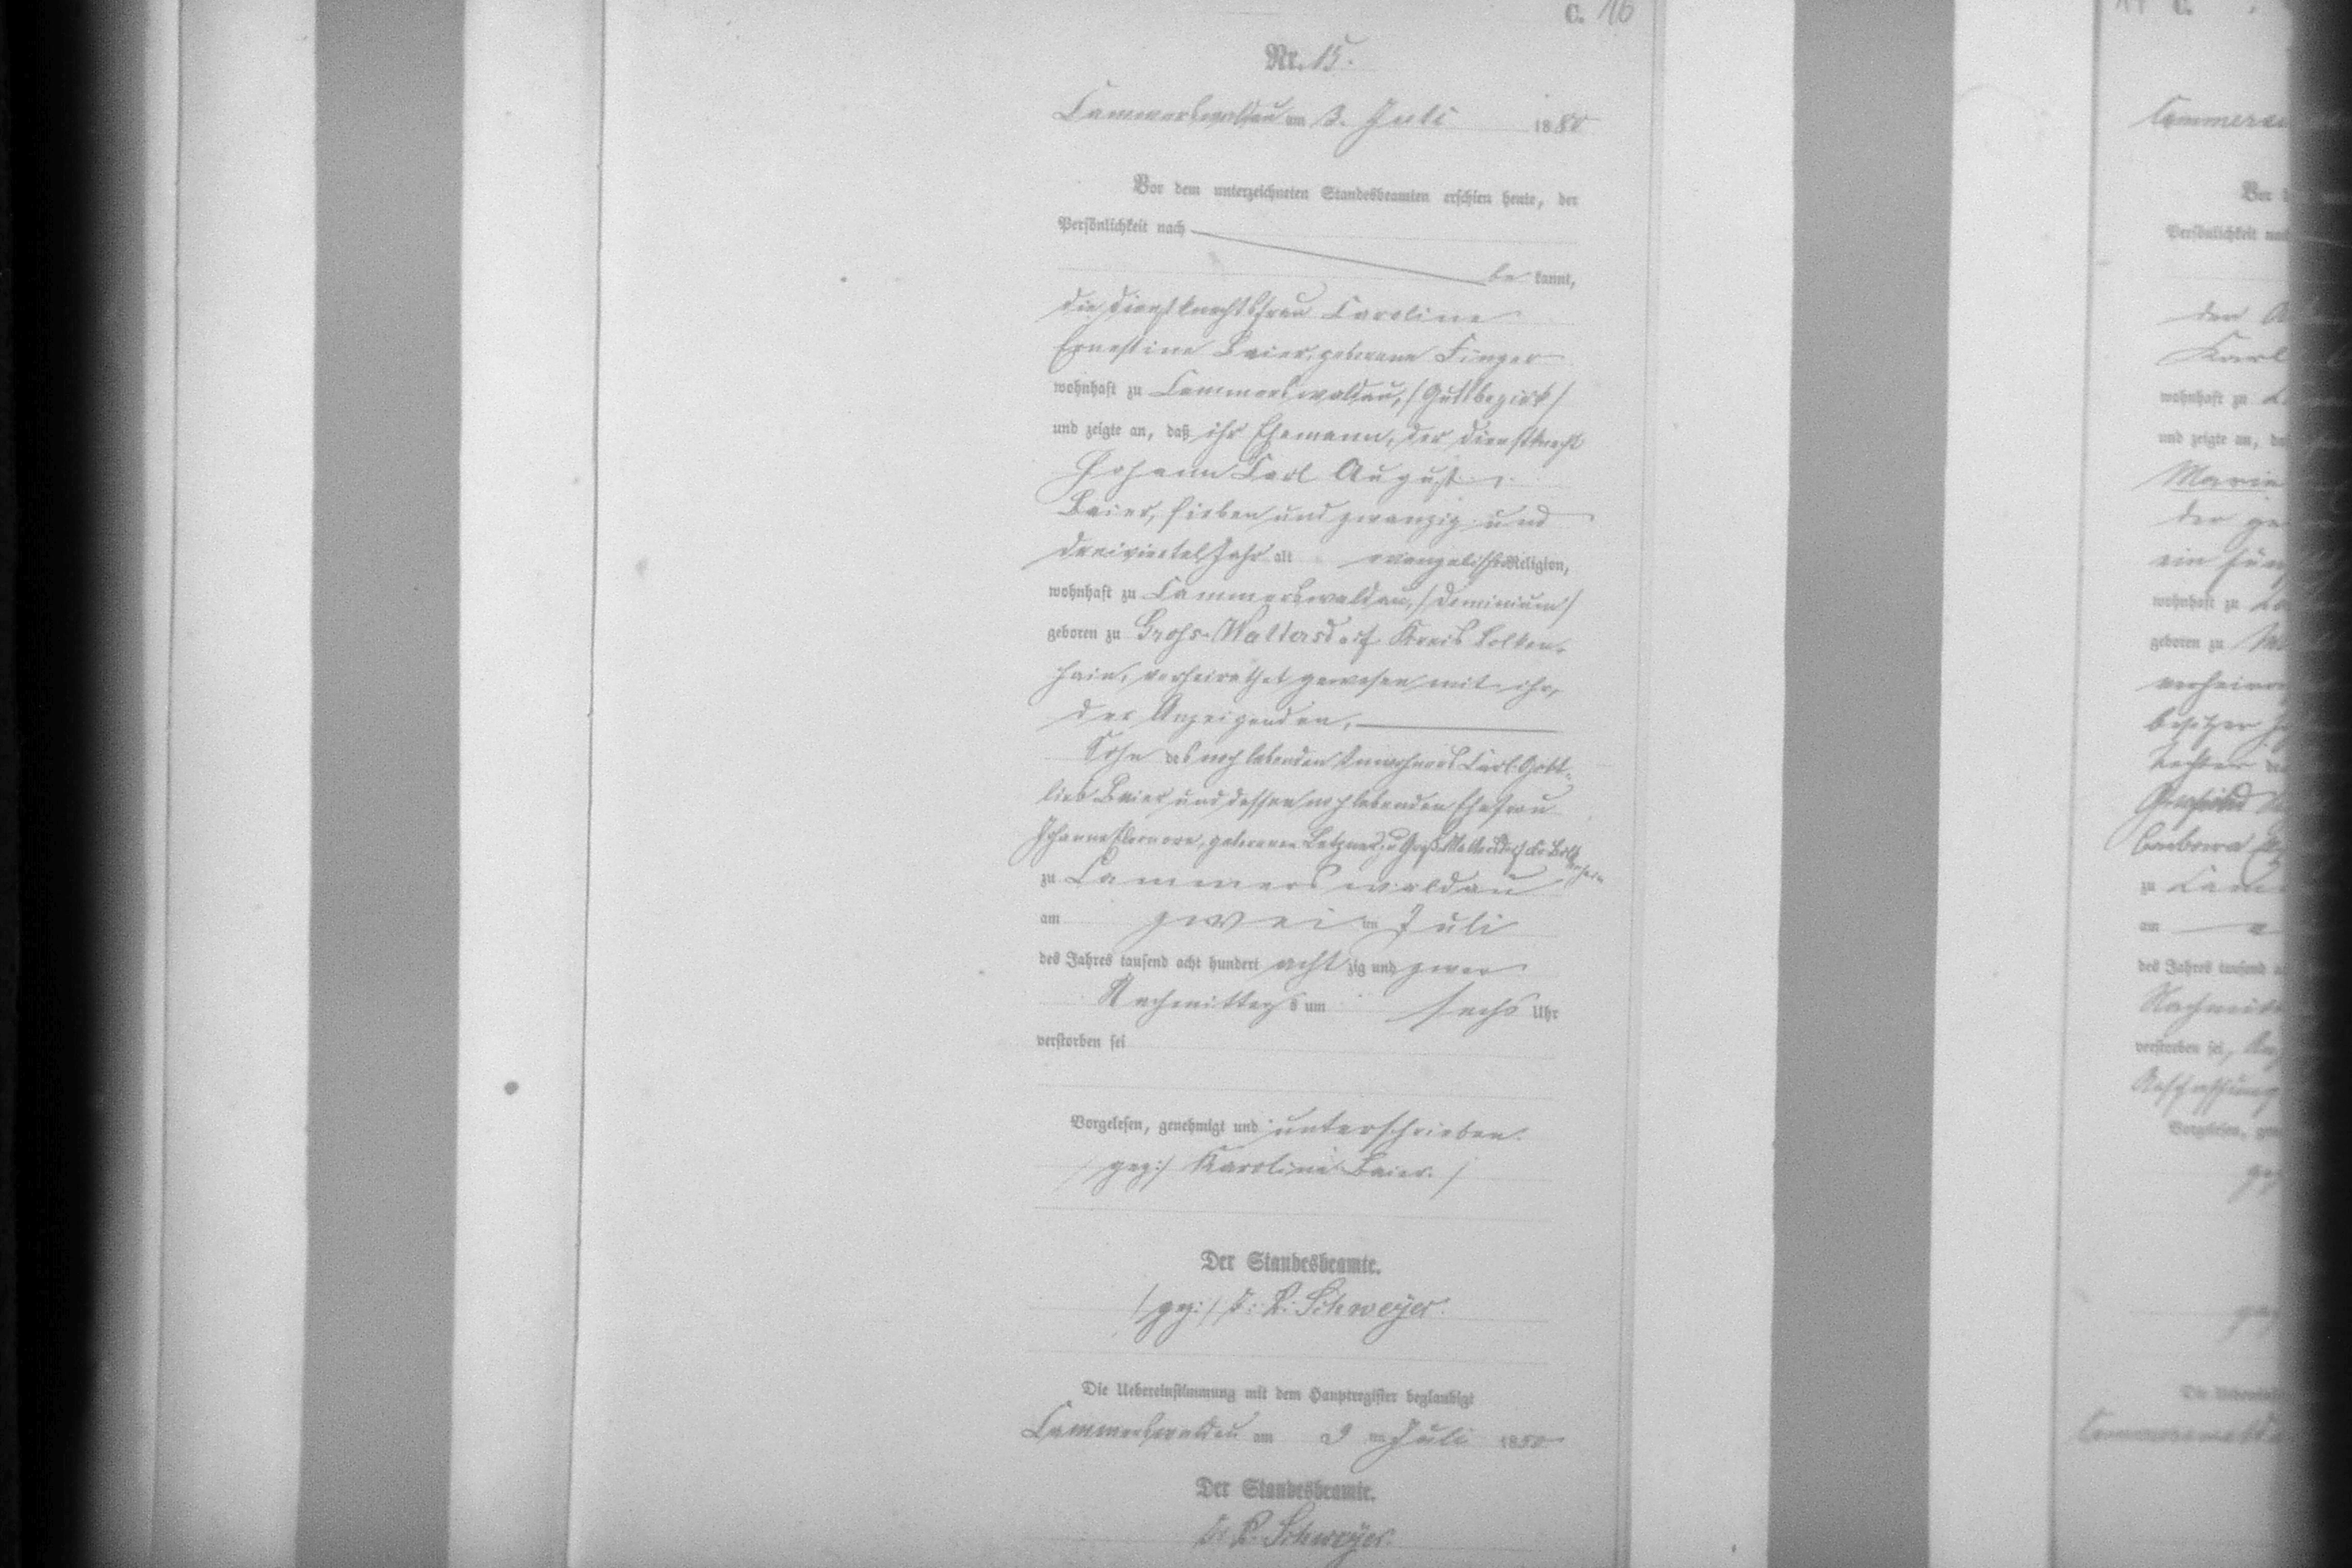 C. 16
Nr. 15.
Cammerswaldau am 3. Juli 1880
Vor dem unterzeichneten Standesbeamten erschien heute, der
Persönlichkeit nach
be kannt,
die Dienstknechtsfrau Caroline
Ernestine Baier, geborene Finger
wohnhaft zu Cammerswaldau, (Gutsbezirk)
und zeigte an, daß ihr Ehemann, der Dienstknecht
Johann Carl August
Baier, sieben und zwanzig und
dreiviertel Jahr alt evangelischer Religion,
wohnhaft zu Cammerswaldau, (Dominium)
geboren zu Gross-Waltersdorf Kreis Bolken-
hain, verheirathet gewesen mit ihr,
der Anzeigenden,
Sohn des noch lebenden Inwohners Carl Gott-
lieb Baier und dessen noch lebenden Ehefrau
Johanne Eleonore, geborenen zu Groß Waltersdorf Kr. Bolkenhain
zu Cammerswaldau
am zwei ten Juli
des Jahres tausend acht hundert acht zig und zwar
Nachmittags um sechs Uhr
verstorben sei
Vorgelesen, genehmigt und unterschrieben.
(gez:) Karoline Baier.
Der Standesbeamte.
(gez:) Schweyer.
Die Uebereinstimmung mit dem Hauptregister beglaubigt
Cammerswaldau am 3 ten Juli 1880
Der Standesbeamte.
Schweyer.
C.
Vor
Persönlichkeit
der
Karl
wohnhaft zu
und zeigte an,
Marie
der
ein
wohnhaft zu
geboren zu
besitzer
Tochter
zu
am
des Jahres tausend
verstorben sei,
Vorgelesen,